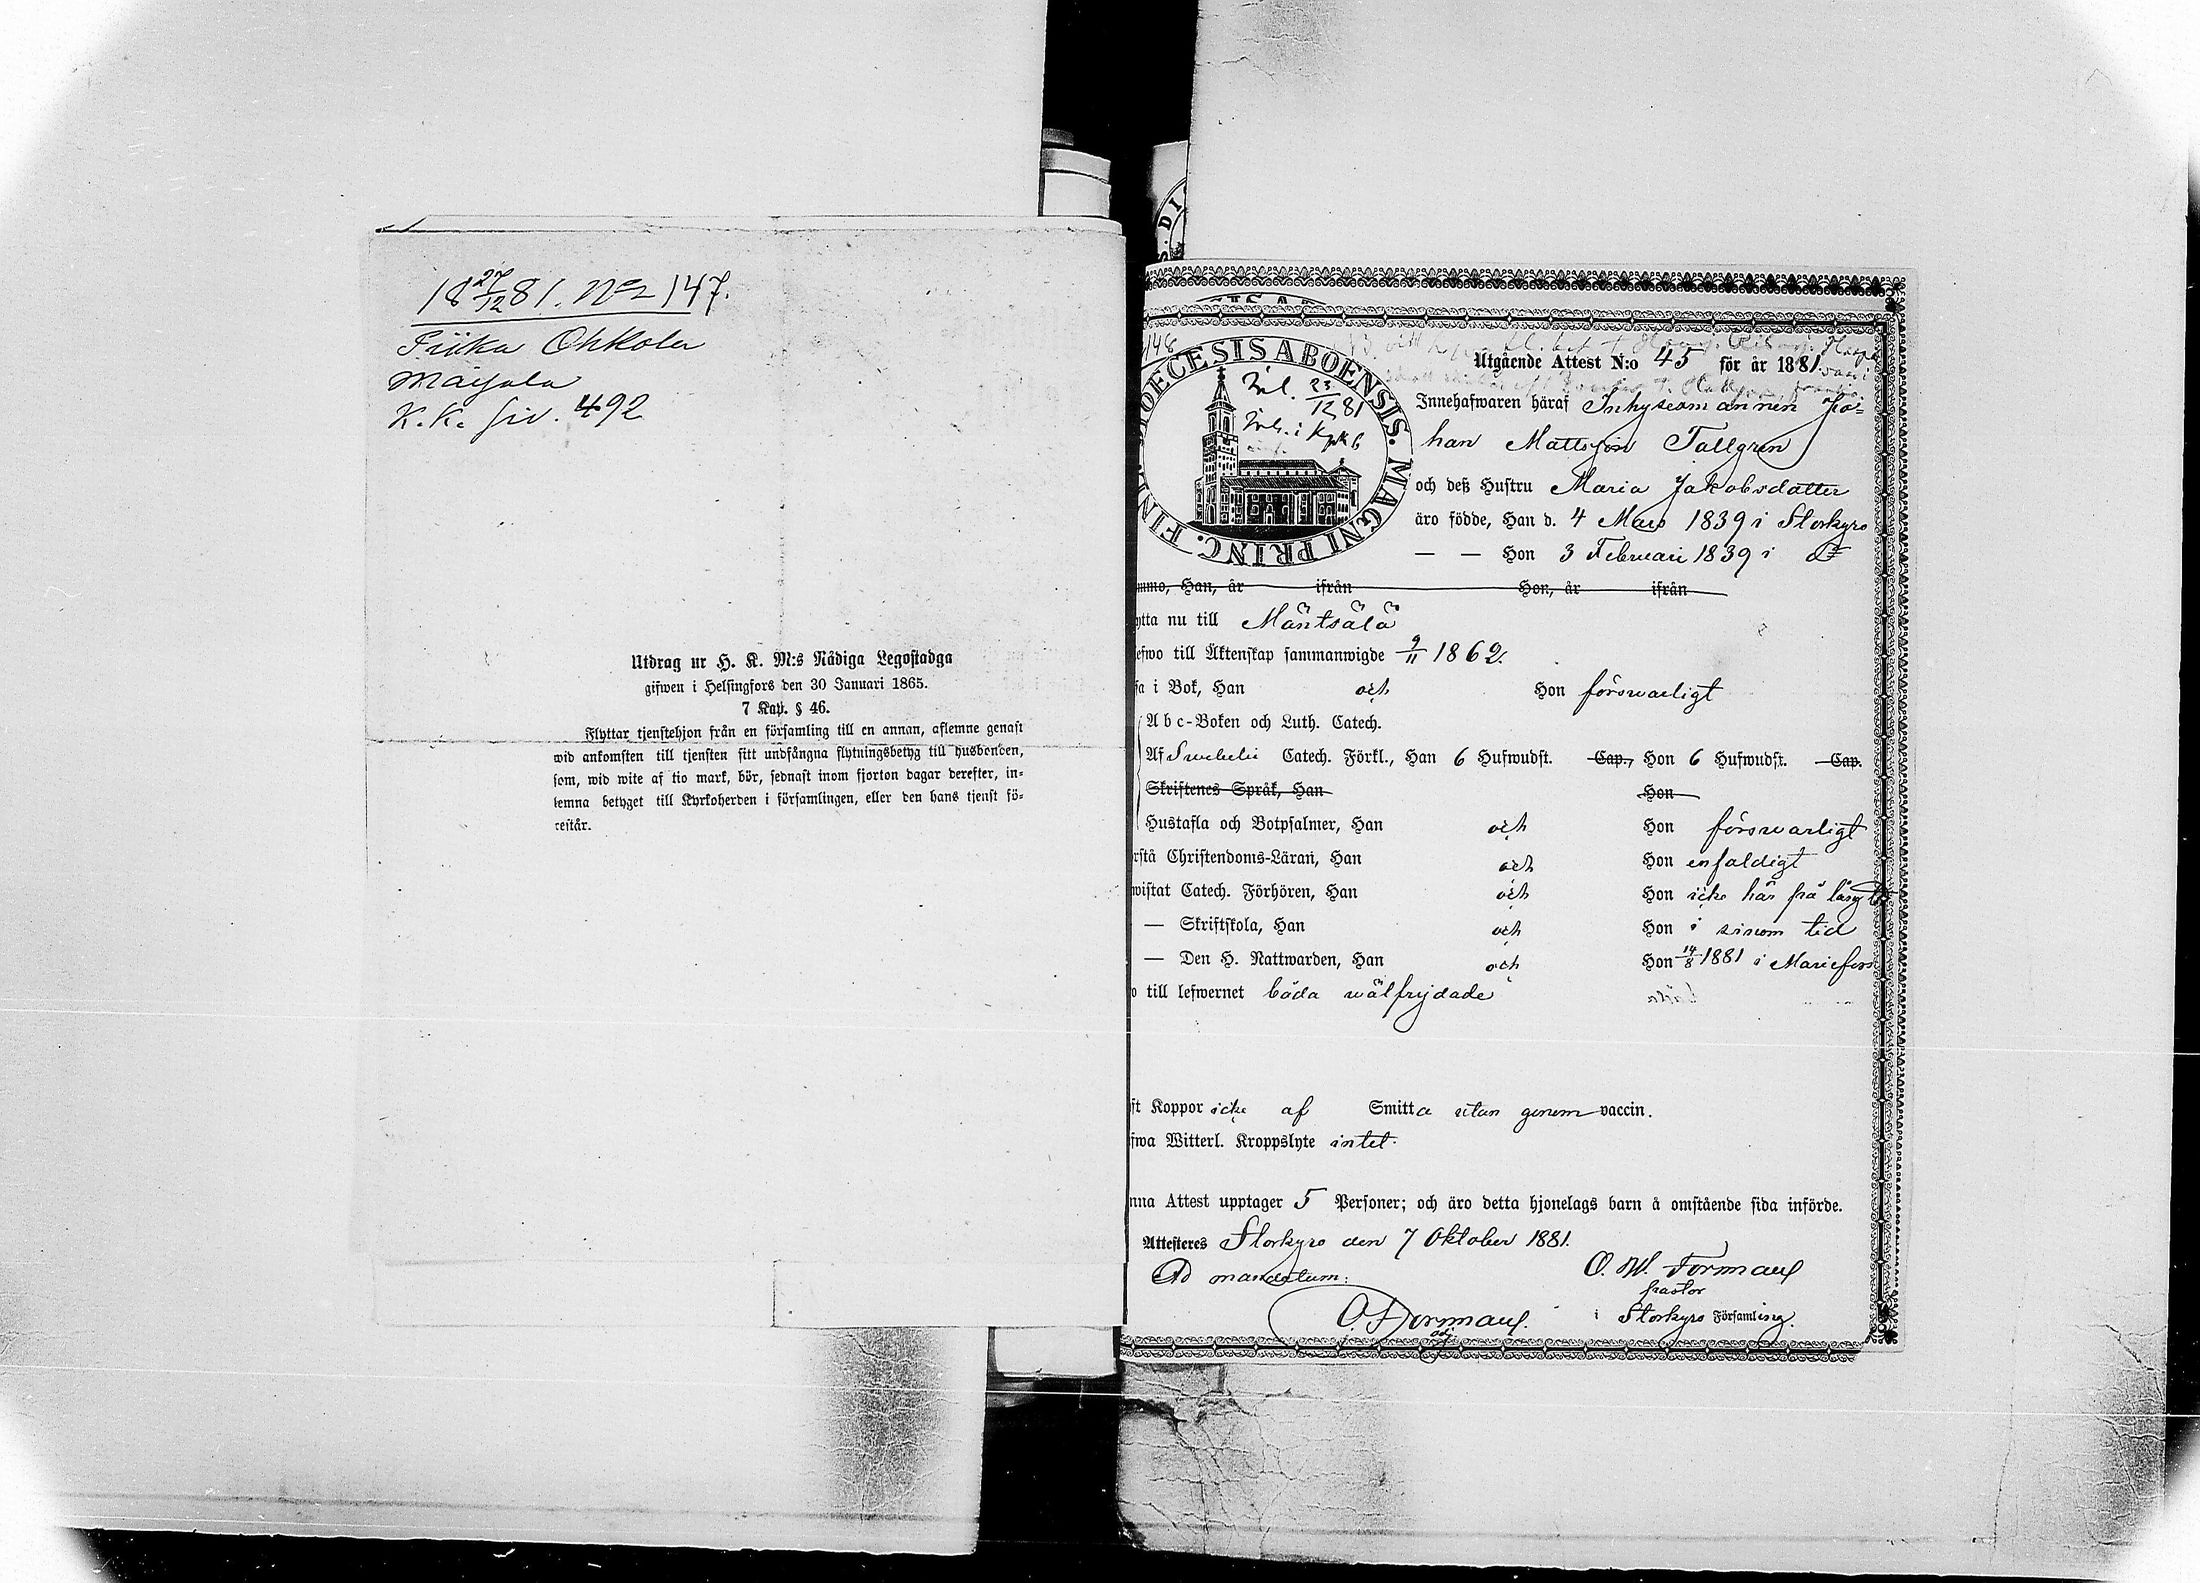 18 27/12 81. No 147.
Fiika Ohkola
Maijala
K.K. siv. 492
Utdrag ur H. K. M:s Nådiga Legostadga
gifwen i Helsingfors den 30 Januari 1865.
7 Kap. § 46.
Flyttar tjenstehjon från en församling till en annan, aflemne genast
wid ankomsten till tjensten sitt undfångna flytningsbetyg till husbonden,
som, wid wite af tio mark, bör, sednast inom fjorton dagar derefter, in-
lemna betyget till Kyrkoherden i församlingen, eller den hans tjenst fö-
restår.
148
DIOECESIS ABOENSIS. MAGNI PRINC. FIN
Inl. 23/12 81
Inl. i Kpkb
Utgående Attest N:o 45 för år 1881.
Innehafwaren häraf Inhysesmannen Jo-
han Mattsson Tallgren
och deß Hustru Maria Jakobsdatter
äro födde, Han d. 4 Mars 1839 i Storkyro
— — Hon 3 Februari 1839 i do
mmo, Han, år ifrån Hon, år ifrån
ytta nu till Mäntsälä
efwo till Äktenskap sammanwigde 9/11 1862.
sa i Bok, Han och Hon förswarligt
Abc-Boken och Luth. Catech.
Af Swebelii Catech. Förkl., Han 6 Hufwudst. Cap., Hon 6 Hufwudst. Cap.
Skriftenes Språk, Han Hon
Hustafla och Botpsalmer, Han och Hon förswarligt
rstå Christendoms-Läran, Han och Hon enfaldigt
wistat Catech. Förhören, Han och Hon icke här på långt
— Skriftskola, Han och Hon i sinom tid
— Den H. Nattwarden, Han och Hon 14/8 1881 i Mariefors
o till lefwernet båda wälfrejdade
ft Koppor icke af Smitta utan genom vaccin.
fwa Witterl. Kroppslyte intet.
nna Attest upptager 5 Personer; och äro detta hjonelags barn å omstående sida införde.
Attesteres Storkyro den 7 Oktober 1881.
Ad mandatum: O. W. Forsman
pastor
O. Forsman. i Storkyro Församling.
adj.